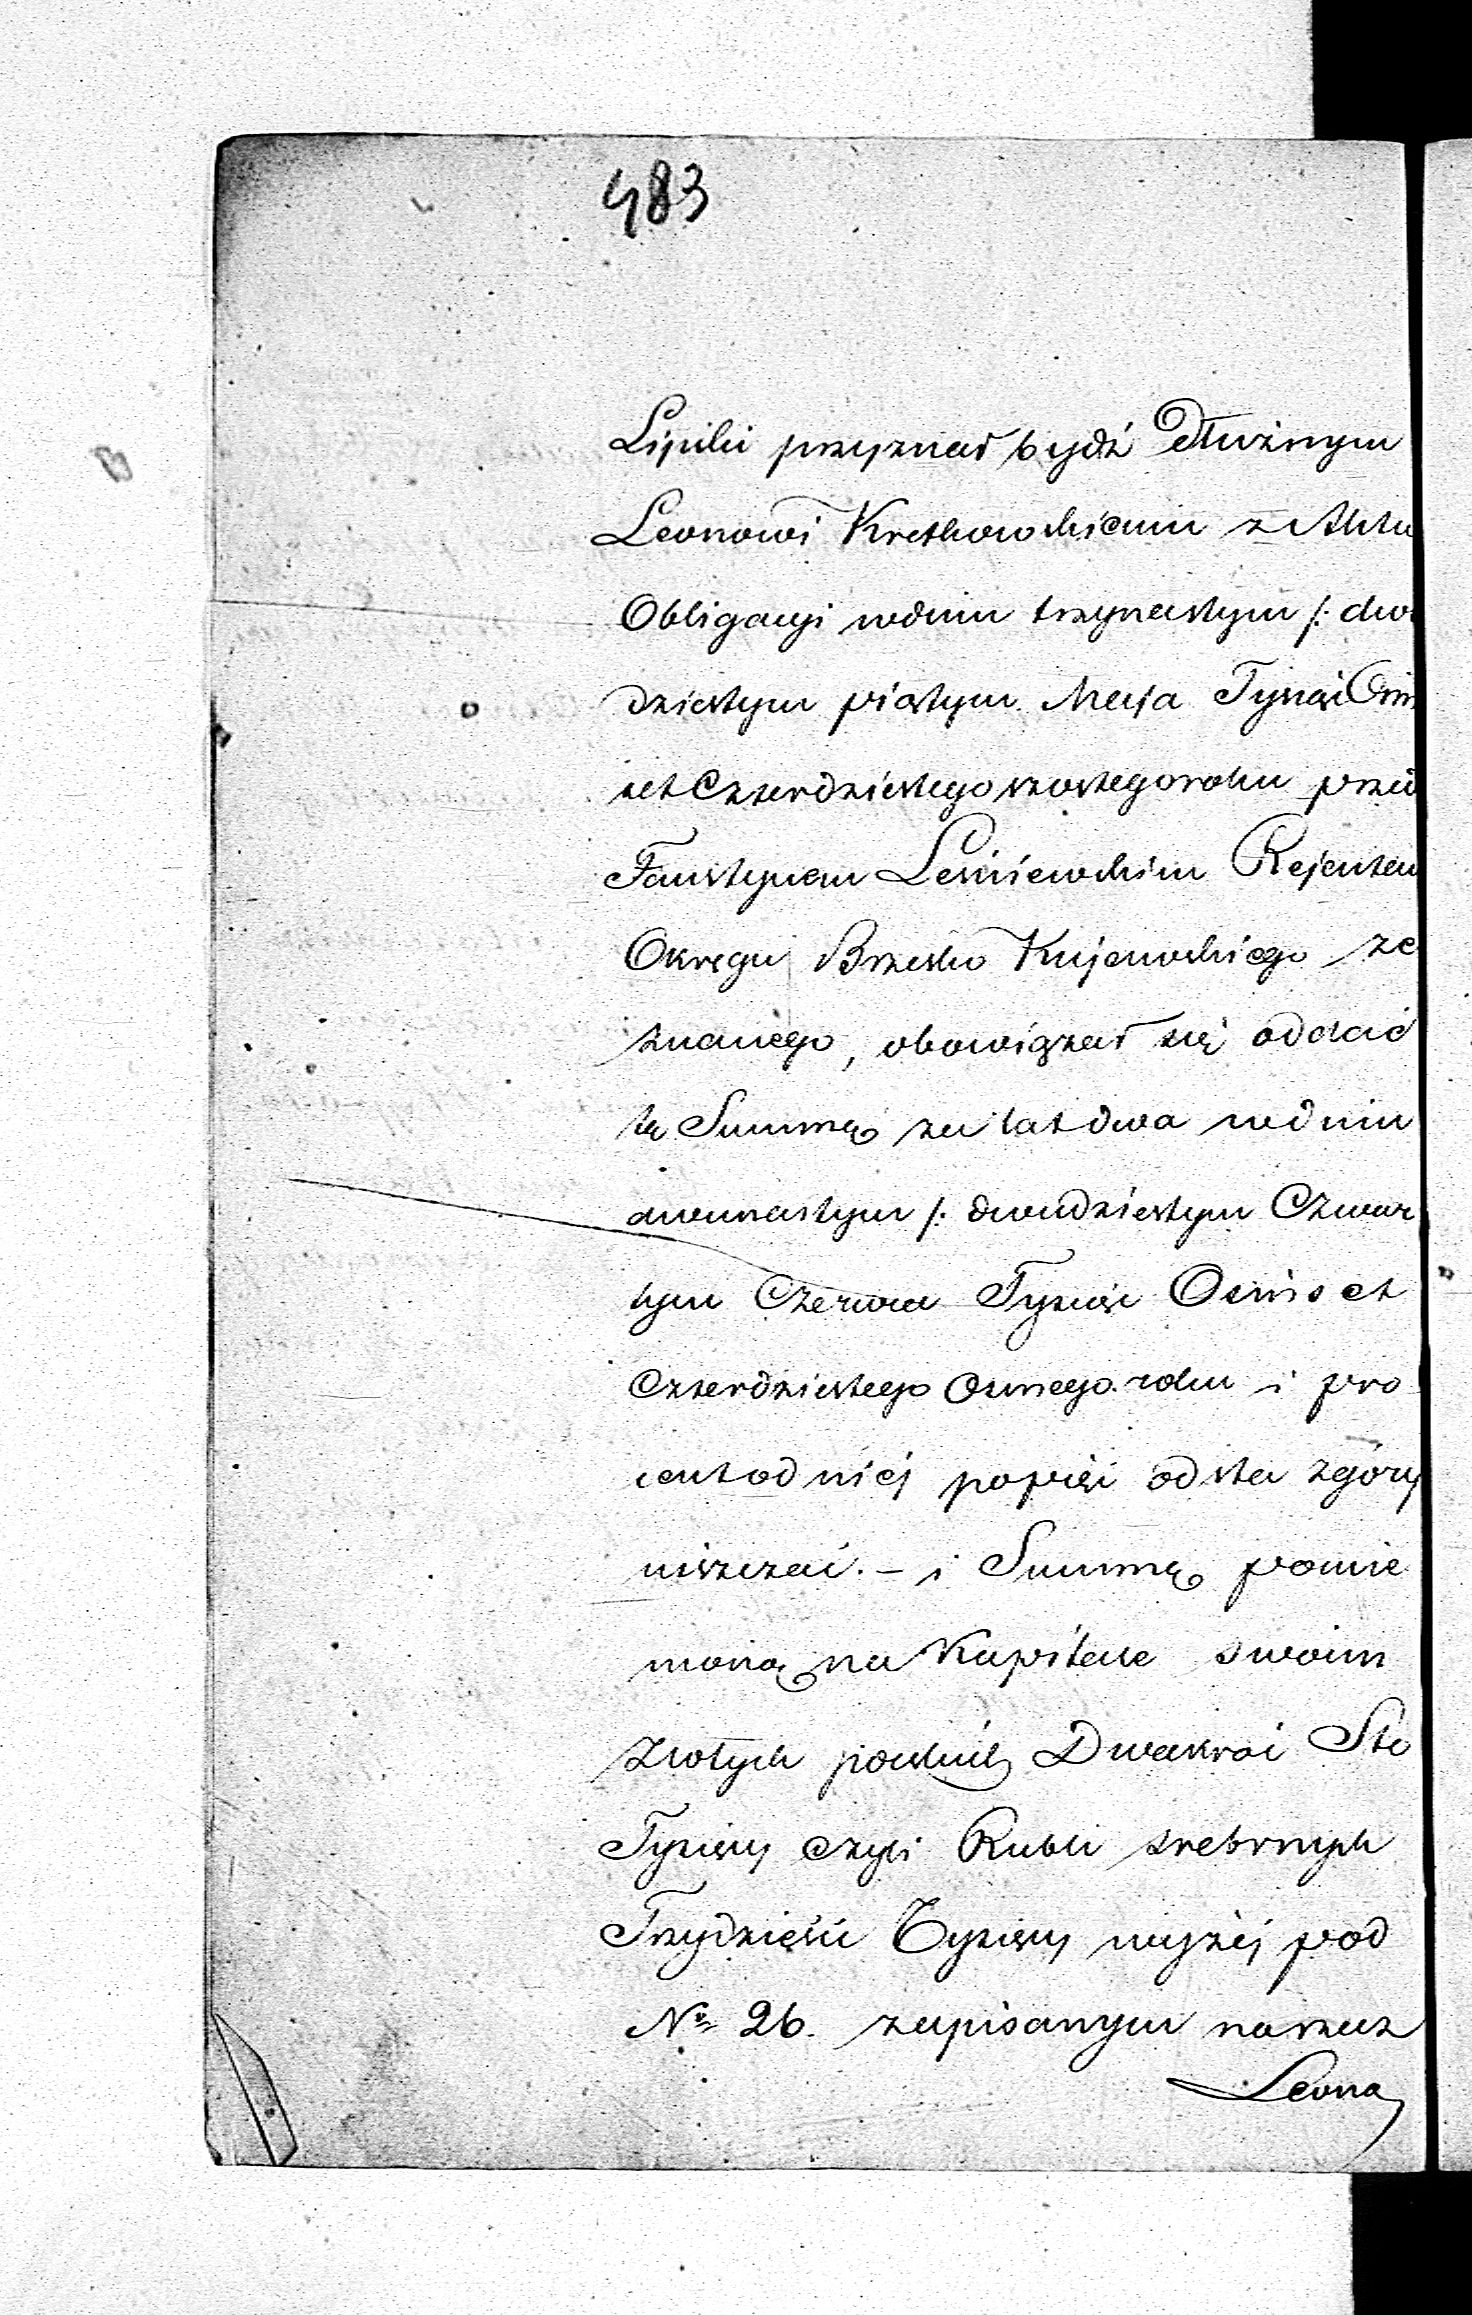 483
Lipski przyznał bydź Dłużnym
Leonowi Kretkowskiemu z Aktu
Obligacyi wdniu trzynastym /: dwu
dziestym piątym Maja Tysiąc Ośm
set Czterdziestego szostego roku przed
Faustynem Leśniewskim Rejentem
Okręgu Brzesko Kujawskiego ze
znanego, obowiązał się oddać
tę Summę za lat dwa wdniu
dwunastym /: dwudziestym Czwar
tym Czerwca Tysiąc Ośmset
Czterdziestego Osmego roku i pro
cent od niej po pięć od sta zgóry
uiszczać. – i Summę pomie
nioną na Kapitale swoim
Złotych polskich Dwakroć Sto
Tysięcy czyli Rubli srebrnych
Trzydzieści Tysięcy wyżej pod
No 26. zapisanym na rzecz
Leona